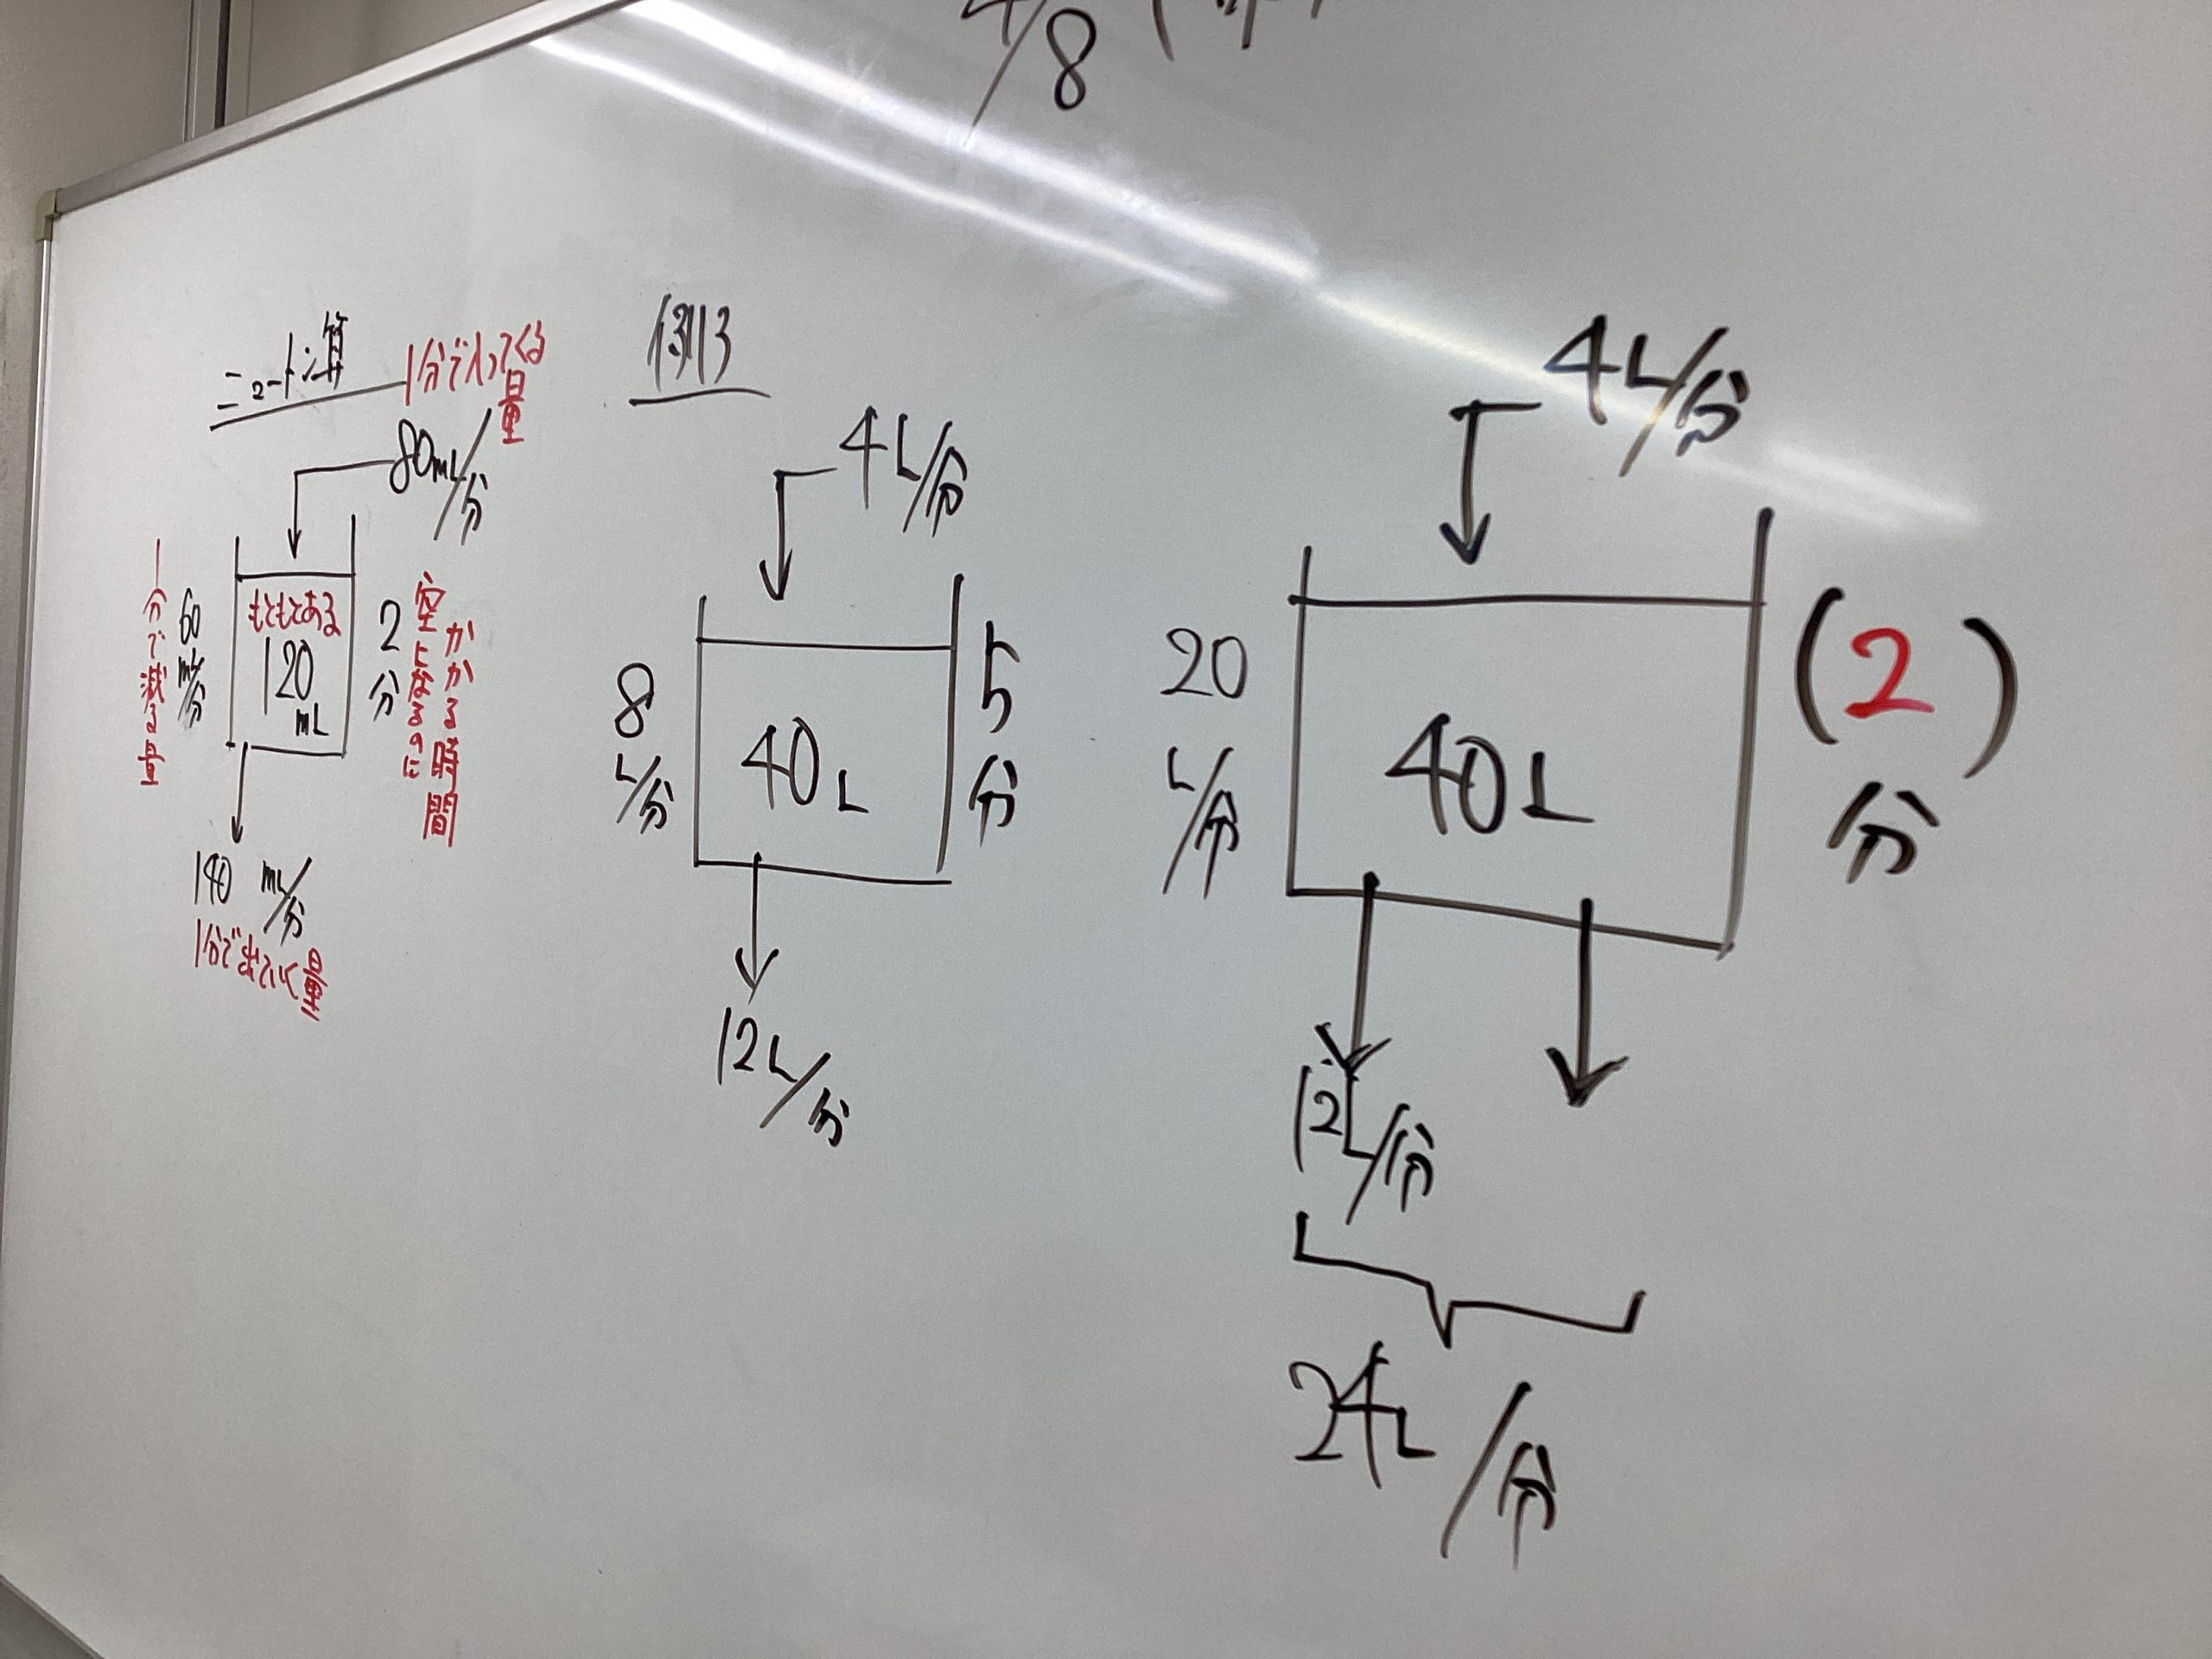 4/8
ニュートン算
1分で入ってくる量
80mL/分
もともとある
120mL
1分で減る量
60mL/分
2分
空になるのにかかる時間
140mL/分
1分で出ていく量
例3
4L/分
8L/分
40L
5分
12L/分
4L/分
20L/分
40L
(2)分
12L/分
24L/分